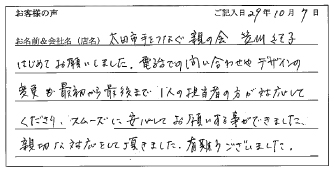 お客様の声 ご記入日 29年 10月 7日
お名前&会社名（店名） 太田市手をつなぐ親の会
はじめてお願いしました。電話での問い合わせやデザインの
変更も最初から最後まで1人の担当者の方が対応して
くださり、スムーズに安心してお願いする事ができました。
親切な対応をして頂きました。有難うございました。